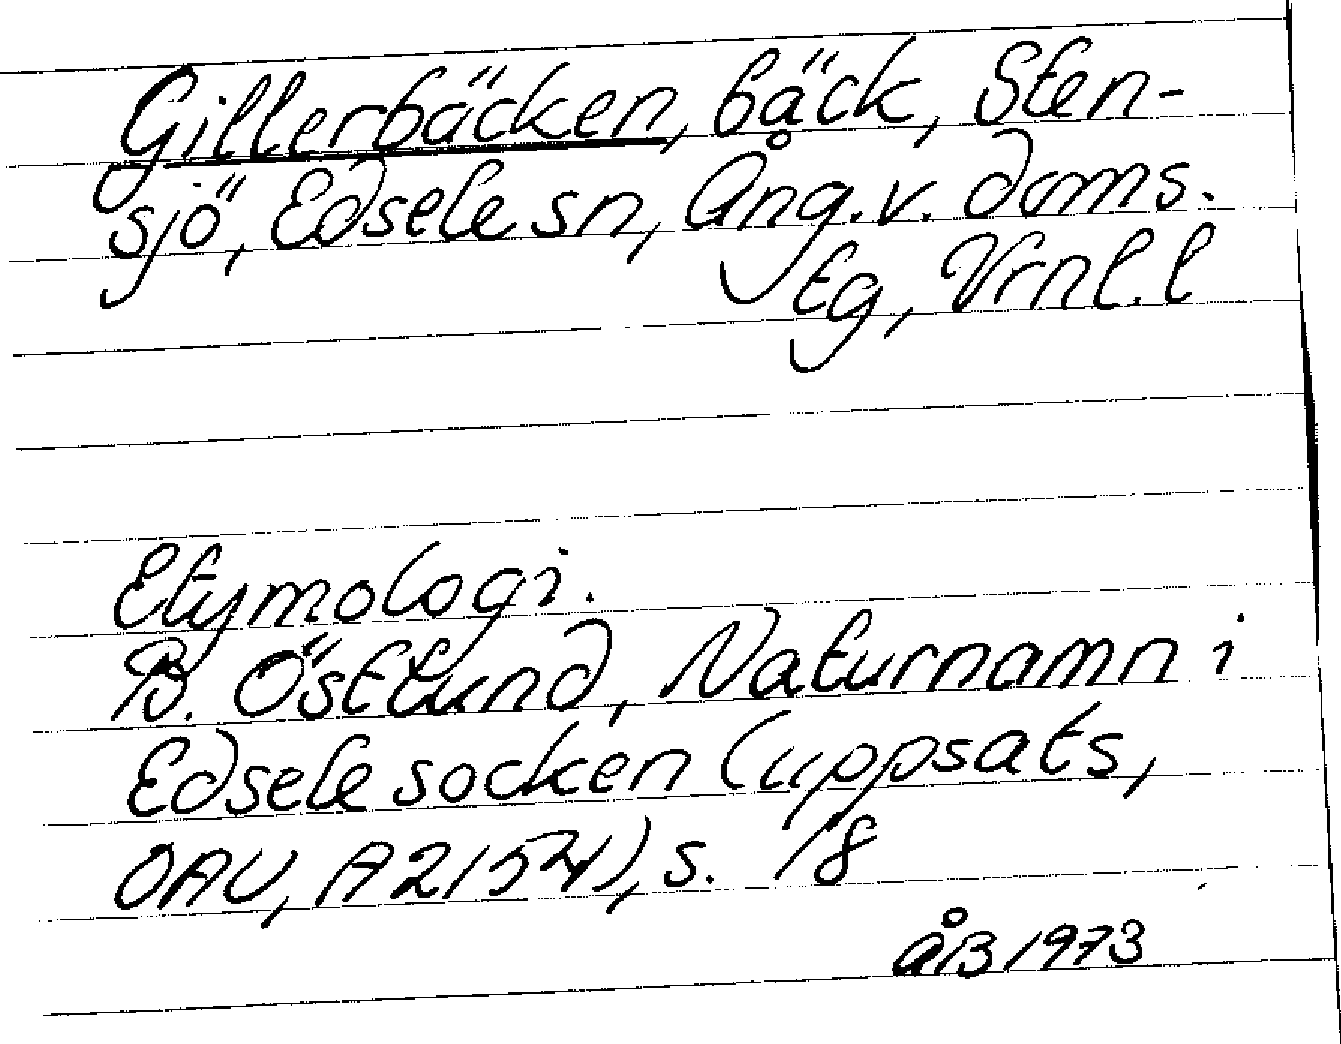 Gillerbäcken, bäck, Sten-
sjö, Edsele sn, Ång. v. doms.
tg, Vrnl. l
Etymologi.
B. Östlund, Naturnamn i
Edsele socken (uppsats,
OAU, A2154), s. 18
ÅB 1973